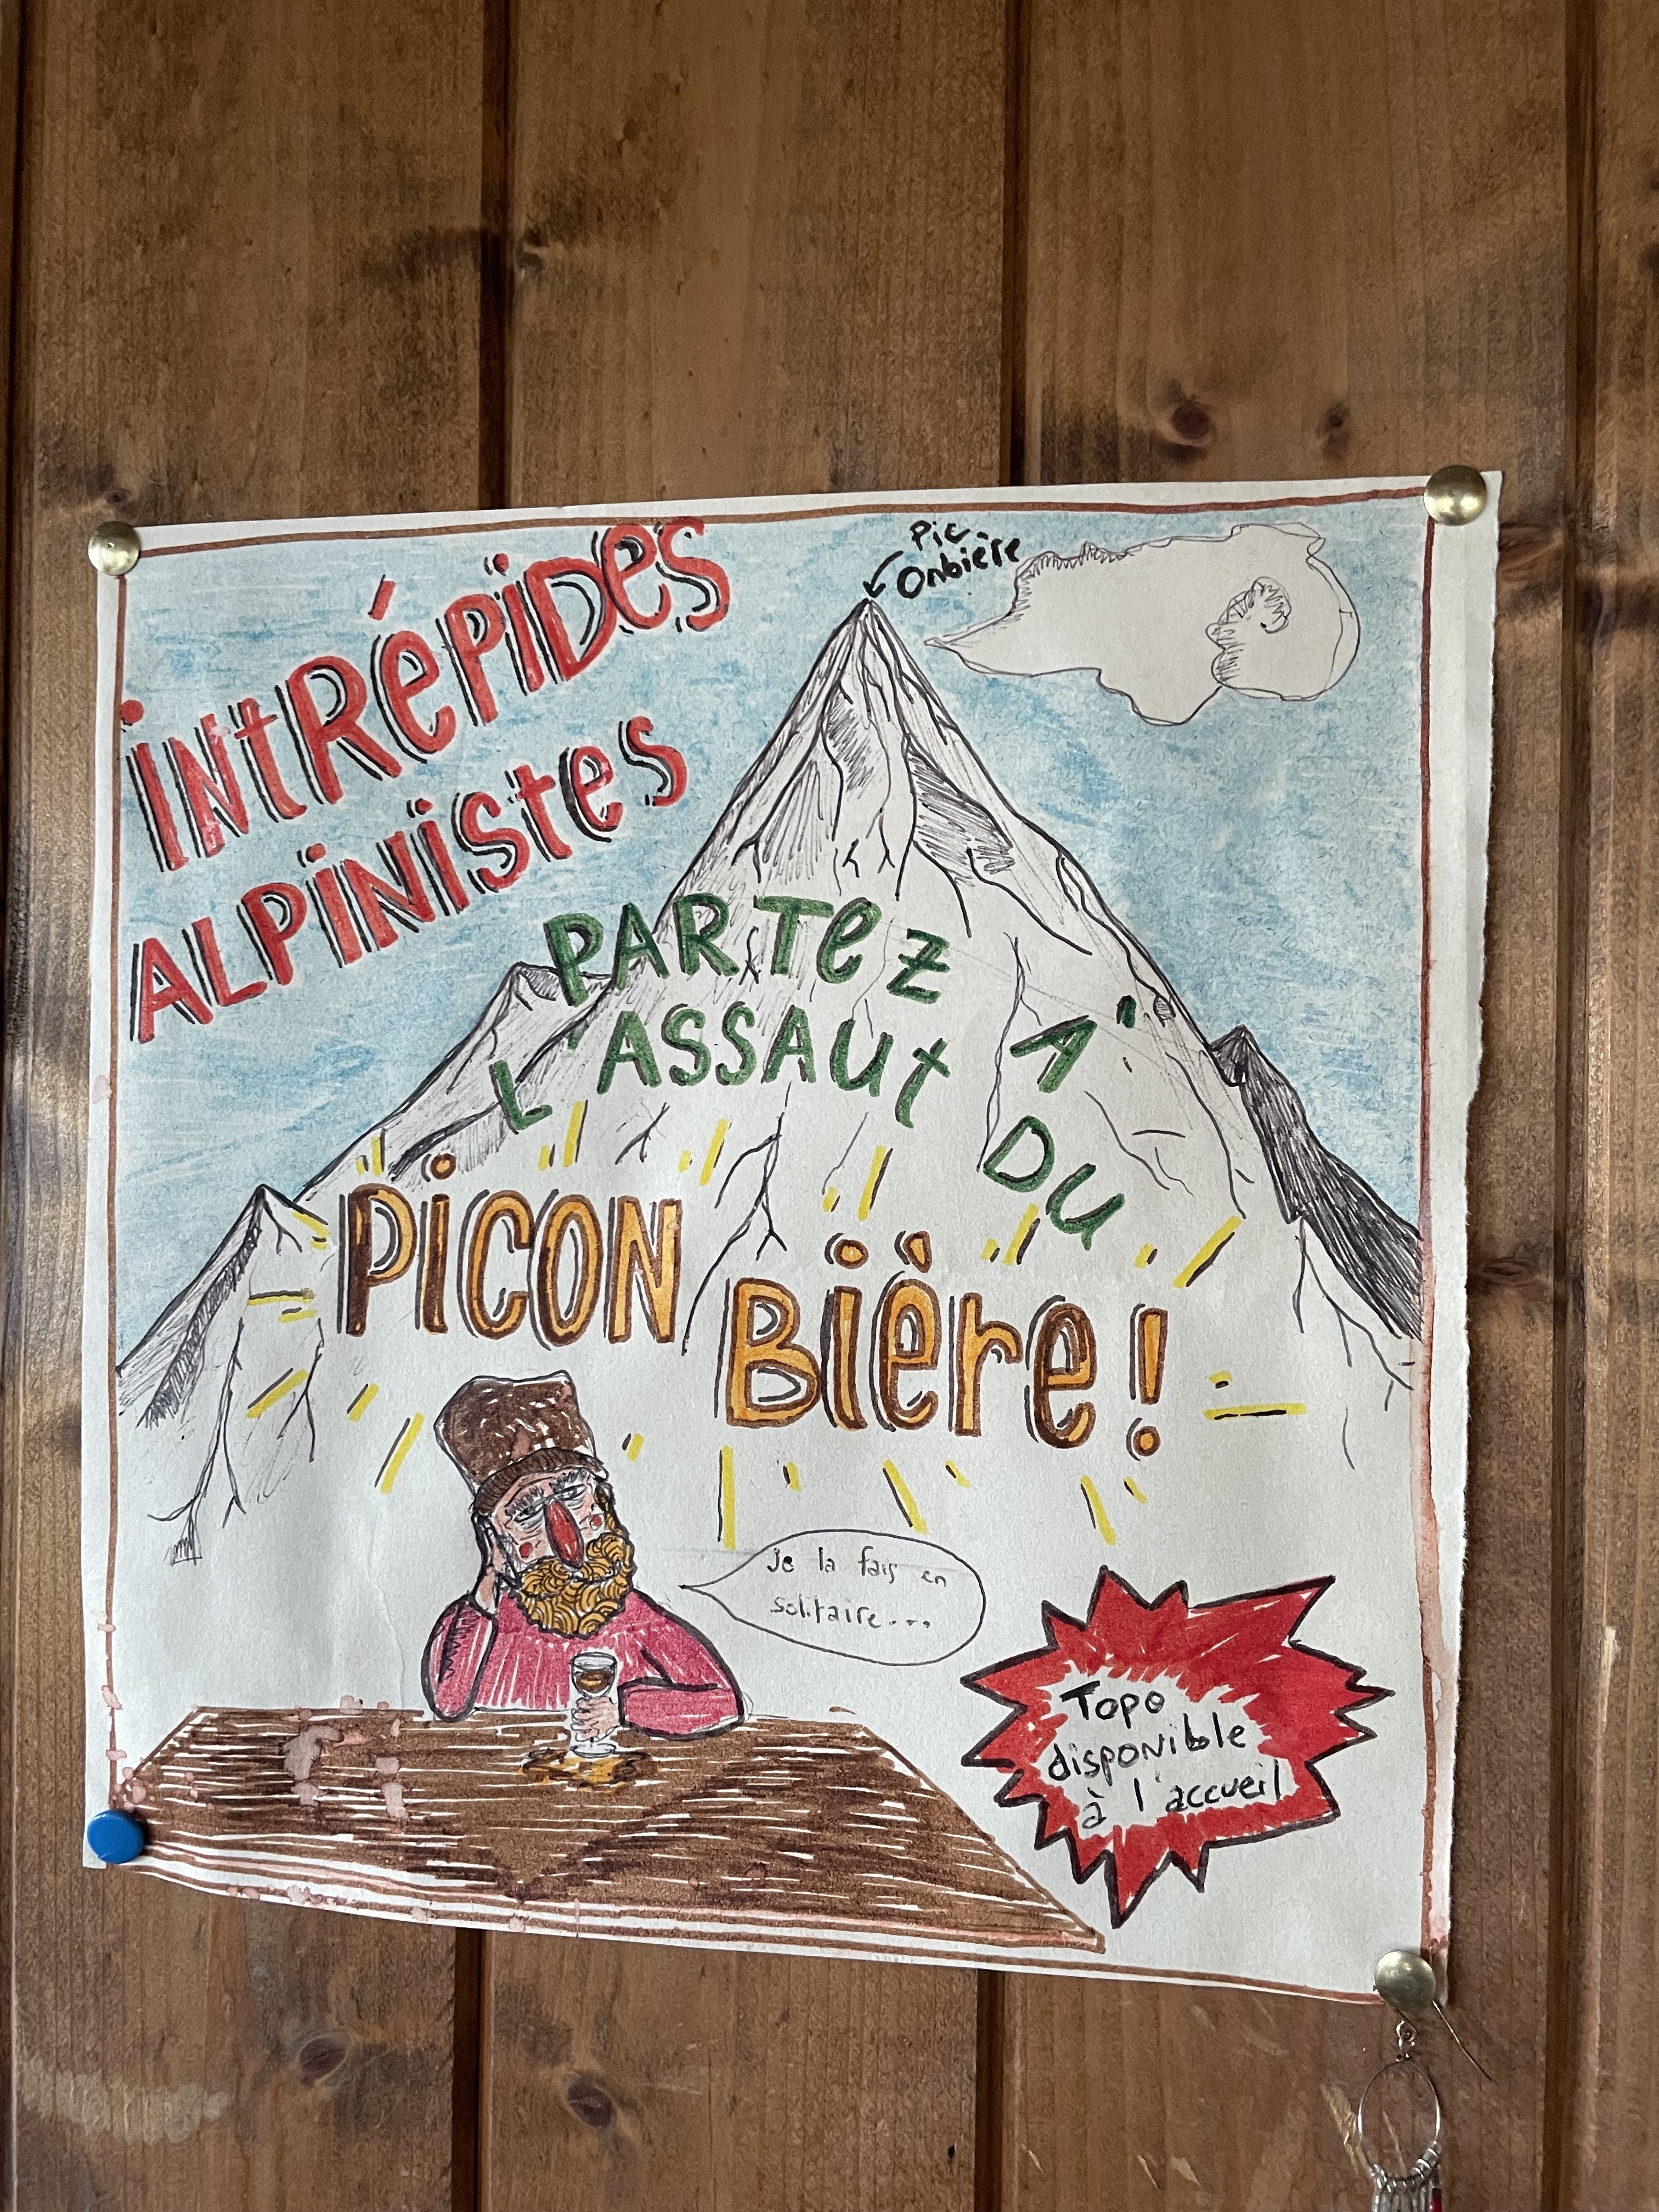 INTRÉPIDES
ALPINISTES
Pic
Onbière
PARTEZ À
L'ASSAUT DU
PICON
BIÈRE!
Je la fais en
solitaire...
Topo
disponible
à l'accueil